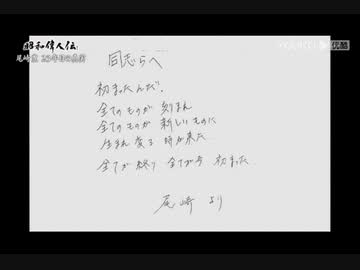 昭和偉人伝
尾崎豊 25年目の真実
同志らへ
初まったんだ!
全てのものが 刻まれ
全てのものが 新しいものに
生まれ変る 時が来た
全てが終り 全てが今 初まった
尾崎 より